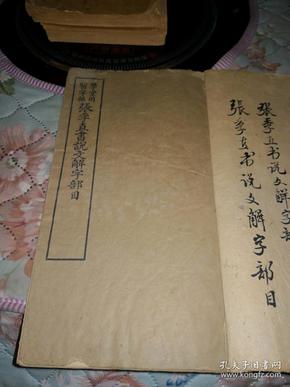 張季直書說文解字部目
張季直书说文解字部
張季直书说文解字部目
孔夫子旧书网